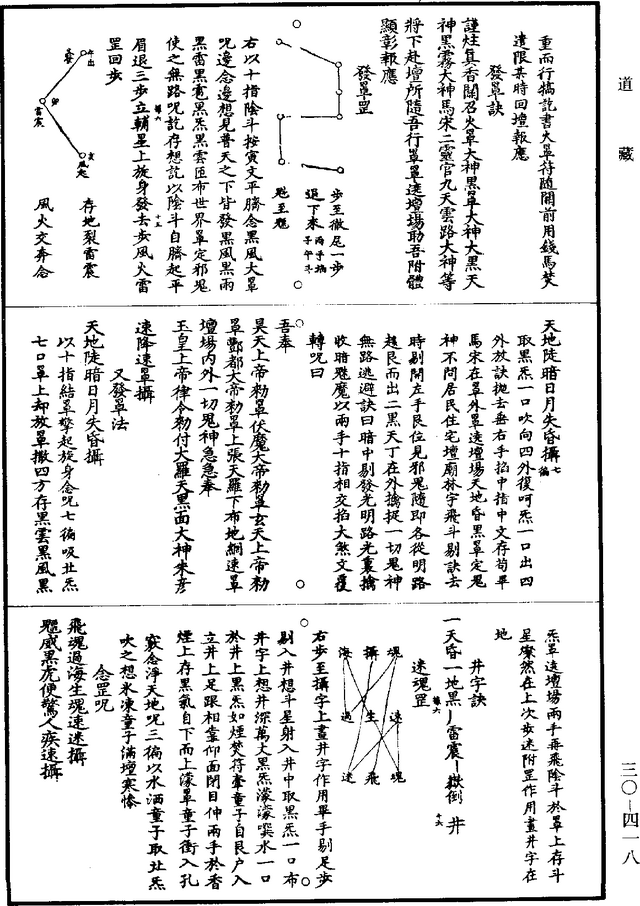 道藏
重而行犒訖書火罩符隨關前用錢馬焚
遣限某時回壇報應
發罩訣
謹炷真香關召火罩大神黑罩大神大黑天
神黑霧大神馬宋二靈官九天雲路大神等
將下赴壇所隨吾行罩罩遶壇場助吾附體
顯彰報應
發罩罡
步至徹尾一步
退下來兩手掐子午斗
魁至魁
右以十指陰斗按寅文平臍念黑風大罩
咒邊念邊想見普天之下皆發黑風黑雨
黑雷黑電黑炁黑雲匝布世界罩定邪鬼
使之無路咒訖存想訖以陰斗自臍起平
眉退三步立輔星上旋身發去步風火雷
罡回步
午出
卯
雷震
存地裂雷震
風火交奔念
天地陡暗日月失昏攝七徧
取黑炁一口吹向四外復呵炁一口出四
外放訣拋去垂右手掐中指中文存苟畢
馬宋在罩外罩遶壇場天地昏黑罩定鬼
神不問居民住宅壇廟林宇飛斗剔訣去
時剔開左手艮位見邪鬼隨即各從明路
趍艮而出二黑天丁在外擒捉一切鬼神
無路逃避訣曰暗中剔發光明路光裏擒
收暗魅魔以兩手十指相交掐大煞文覆
轉咒曰
吾奉
昊天上帝勑罩伏魔大帝勑罩玄天上帝勑
罩酆都大帝勑罩上張天羅下布地網速罩
壇場內外一切鬼神急急奉
玉皇上帝律令勑付大羅天黑面大神朱彥
速降速罩攝
又發罩法
天地陡暗日月失昏攝
以十指結罩擎起旋身念咒七徧吸北炁
七口罩上却放罩撒四方存黑雲黑風黑
炁罩遶壇場兩手再飛陰斗於罩上存斗
星燦然在上次步迷附罡作用畫井字在
地
井字訣
一天昏一地黑丨雷震一嶽倒 井
迷魂罡
魂攝海
速生過
魂飛迷
右步至攝字上畫井字作用單手剔足步
剔入井想斗星射入井中取黑炁一口布
井字上想井深萬丈黑炁濛濛噀水一口
於井上黑炁如煙焚符牽童子自艮户入
立井上足跟相靠仰面閉目伸兩手於香
煙上存黑氣自下而上濛罩童子衝入孔
竅念淨天地咒三徧以水洒童子取北炁
吹之想氷凍童子滿壇寒慘
念罡咒
飛魂過海生魂速迷攝
魍威黑虎便驚人疾速攝
三〇—四一八